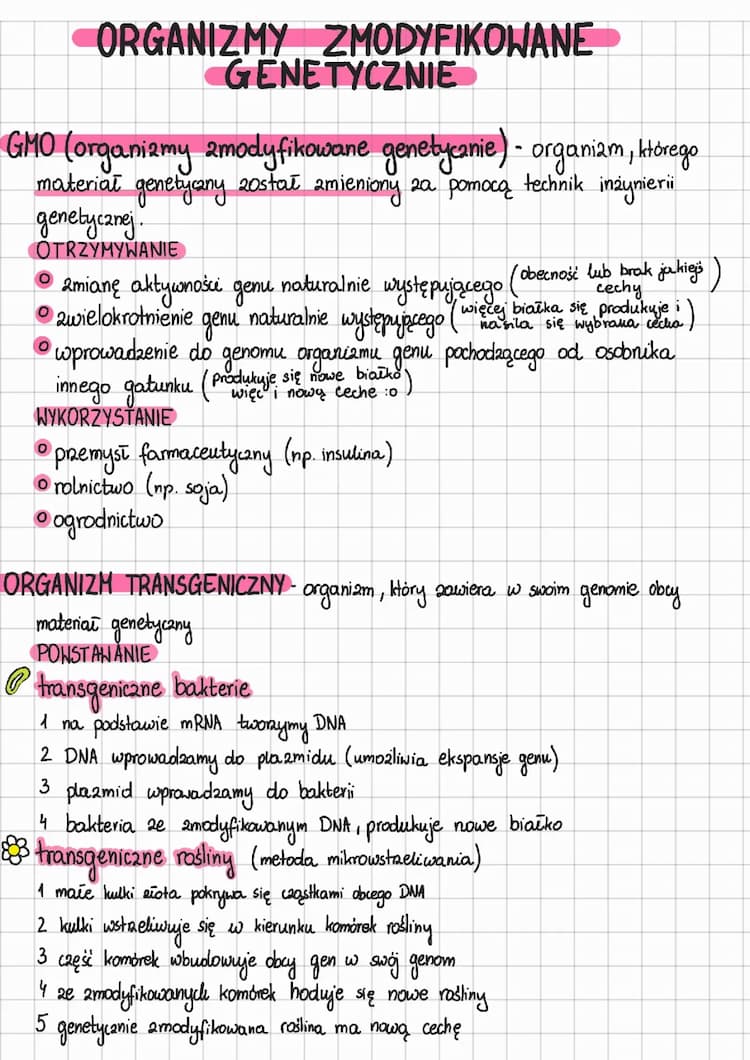 ORGANIZMY ZMODYFIKOWANE
GENETYCZNIE
GMO (organizmy zmodyfikowane genetycznie) - organizm, którego
materiał genetyczny został zmieniony za pomocą technik inżynierii
genetycznej.
OTRZYMYWANIE
zmianę aktywności genu naturalnie występującego (obecność lub brak jakiejś
cechy)
zwielokrotnienie genu naturalnie występującego (więcej białka się produkuje i
nasila się wybrana cecha)
wprowadzenie do genomu organizmu genu pochodzącego od osobnika
innego gatunku (produkuje się nowe białko
więc i nową ceche :o)
WYKORZYSTANIE
przemysł farmaceutyczny (np. insulina)
rolnictwo (np. soja)
ogrodnictwo
ORGANIZM TRANSGENICZNY - organizm, który zawiera w swoim genomie obcy
materiał genetyczny
POWSTAWANIE
transgeniczne bakterie
1 na podstawie mRNA tworzymy DNA
2 DNA wprowadzamy do plazmidu (umożliwia ekspansje genu)
3 plazmid wprowadzamy do bakterii
4 bakteria ze zmodyfikowanym DNA, produkuje nowe białko
transgeniczne rośliny (metoda mikrowstrzeliwania)
1 małe kulki złota pokrywa się cząstkami obcego DNA
2 kulki wstrzeliwuje się w kierunku komórek rośliny
3 część komórek wbudowuje obcy gen w swój genom
4 ze zmodyfikowanych komórek hoduje się nowe rośliny
5 genetycznie zmodyfikowana roślina ma nową cechę